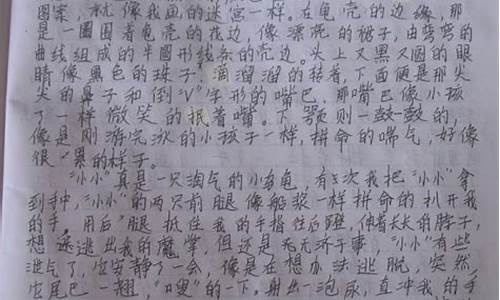 图案，就像我画的迷宫一样。在龟壳的边缘，那
是一圈围着龟壳的花边，像漂亮的裙子，由弯弯的
曲线组成的半圆形线条的壳边。头上又黑又圆的眼
睛像黑色的珠子，滴溜溜的转着，下面便是那尖
尖的鼻子和倒“V”字形的嘴巴，那嘴巴像小孩
了一样微笑的抿着嘴。下颚则一鼓一鼓的，
像是刚游完泳的小孩子一样，拼命的喘气，好像
很累的样子。
“小小”真是一只淘气的小乌龟，有一次我把“小小”拿
到手中，“小小”的两只前腿像船桨一样拼命的扒开我
的手，用后腿抵住我的手指往后蹬，伸着长长的脖子，
想逃出我的魔掌，但还是无无济于事。“小小”有些
泄气了，它安静了一会，像是在想办法逃脱，突然，
它尾巴一翘，“嗖”的一下，射出一泡尿，直冲我的手